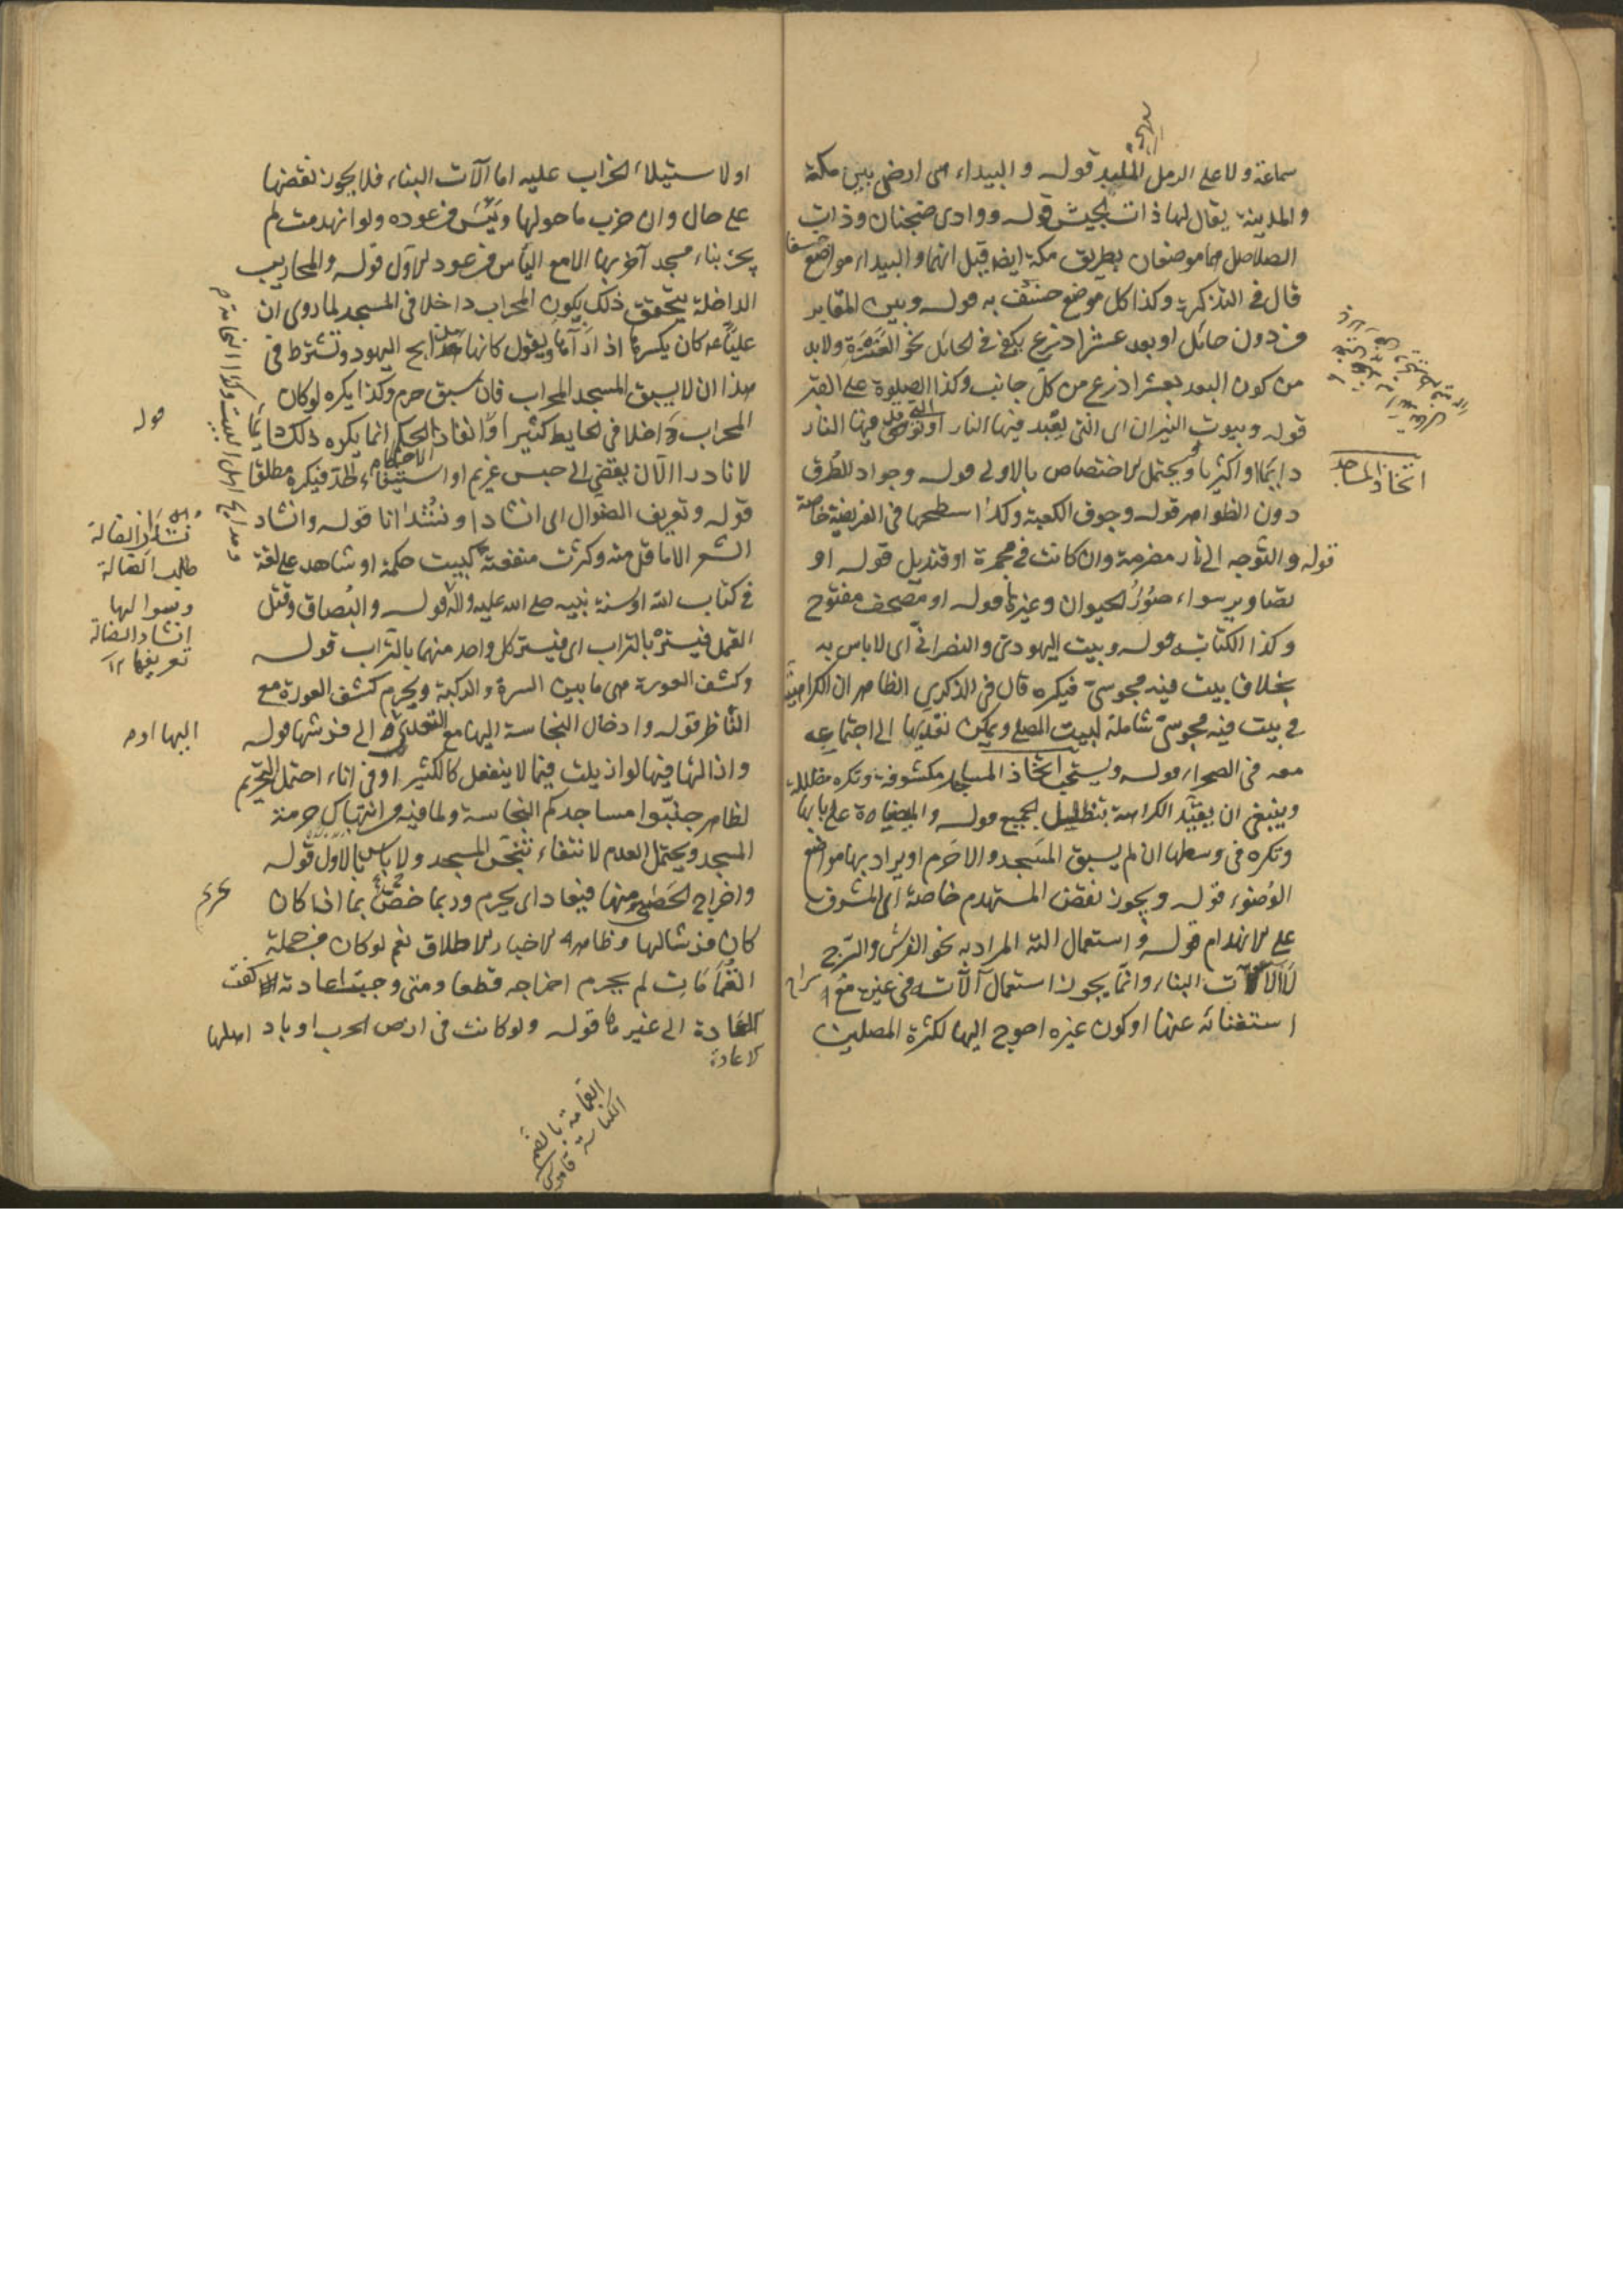 سماعة ولا على الرمل الملبد قوله والبيداء هى ارض بين مكة
والمدينة يقال لها ذات الجيش قوله ووادى ضجنان وذات
الصلاصل هما موضعان بطريق مكة ايضا قيل انهما والبيداء مواضع خسف
قال فى التذكرة وكذا كل موضع خسف به قوله وبين المقابر
من دون حائل او بعد عشر اذرع يكفى فى الحائل نحو العنزة ولابد
من كون البعد بعشر اذرع من كل جانب وكذا الصلوة على القبر
قوله وبيوت النيران اى التى يعبد فيها النار او توقد فيها النار
دائما او اكثريا ويحتمل الاختصاص بالاولى قوله وجواد الطرق
دون الظواهر قوله وجوف الكعبة وكذا سطحها فى الفريضة خاصة
قوله والتوجه الى نار مضرمة وان كانت فى مجمرة او قنديل قوله او
تصاوير سواء صور الحيوان وغيرها قوله او مصحف مفتوح
وكذا الكتاب قوله وبيت اليهودى والنصرانى اى لا باس به
بخلاف بيت فيه مجوسى فيكره قال فى الذكرى الظاهر ان الكراهية
فى بيت فيه مجوسى شاملة لبيت المصلى ويمكن تعديها الى اجتماعه
معه فى الصحراء قوله ويستحب اتخاذ المساجد مكشوفة وتكره مظللة
وينبغى ان يقيد الكراهة بتظليل الجميع قوله والميضاة على بابها
وتكره فى وسطها ان لم يسبق المسجد والا حرم او يراد بها مواضع
الوضوء قوله ويجوز نقض المستهدم خاصة اى المشرف
على الانهدام قوله واستعمال آلته المراد به نحو الفرش والسرج
لا آلات البناء وانما يجوز استعمال آلاته فى غيره مع
استغنائه عنها او كون غيره احوج اليها لكثرة المصلين
اتخاذ المساجد
او لاستيلاء الخراب عليه اما آلات البناء فلا يجوز نقضها
على حال وان خرب ما حولها ويئس من عوده ولو انهدمت لم
يجز بناء مسجد آخر بها الا مع الياس من عود الاول قوله والمحاريب
الداخلة يتحقق ذلك بكون المحراب داخلا فى المسجد لما روى ان
عليا ع كان يكسرها اذا رآها ويقول كانها مذابح اليهود وتشترط فى
هذا ان لا يسبق المسجد المحراب فان سبق حرم وكذا يكره لو كان
المحراب داخلا فى الحايط كثيرا وانفاذ الاحكام انما يكره ذلك دائما
لا نادرا الا ان يفضى الى حبس غريم او استيفاء الحد فيكره مطلقا
قوله وتعريف الضوال اى انشادا ونشدانا قوله وانشاد
الشعر الا ما قل منه وكثرت منفعته كبيت حكمة او شاهد على لغة
فى كتاب الله او سنة نبيه صلى الله عليه وآله قوله والبصاق وقتل
القمل فيستره بالتراب اى فيستر كل واحد منهما بالتراب قوله
وكشف العورة هى ما بين السرة والركبة ويحرم كشف العورة مع
الناظر قوله وادخال النجاسة اليها مع التعدى الى فرشها قوله
وازالتها فيها لو ازيلت فيما لا ينفعل كالكثير او فى اناء احتمل التحريم
لظاهر جنبوا مساجدكم النجاسة ولما فيه من انتهاك حرمة
المسجد ويحتمل العدم لانتفاء تنجس المسجد ولا باس بالاول قوله
واخراج الحصى منها فيعاد اى يحرم وربما خص بما اذا كان
كان فرشا لها وظاهر الاخبار الاطلاق نعم لو كان من جملة
القمامات لم يحرم اخراجه قطعا ومتى وجبت اعادته كفت
الاعادة الى غيرها قوله ولو كانت فى ارض الحرب او باد اهلها
قوله
نشدان الضالة
طلب الضالة
وسوالها
انشاد الضالة
تعريفها ١٢
القمامة بالضم
الكناسة قاموس